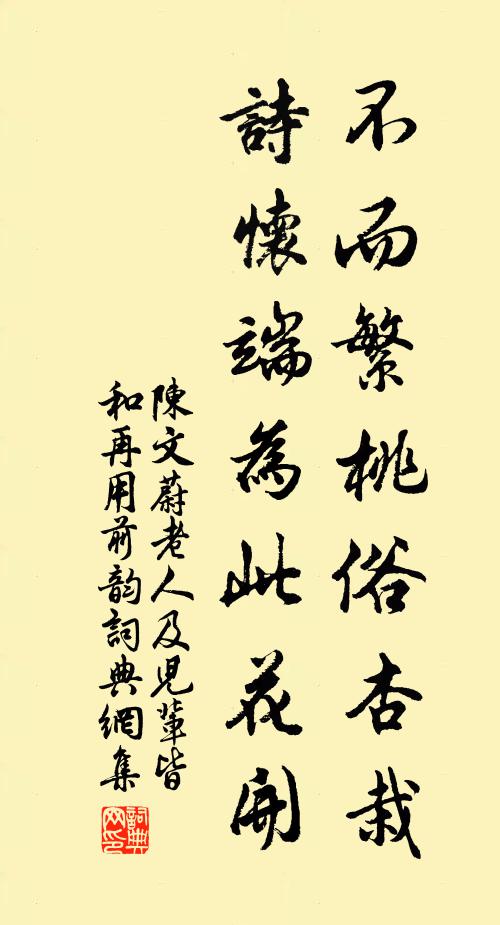 不而繁桃俗杏栽
詩懷端為此花開
陳文蔚老人及児輩皆
和再用前韵詞典網集
詞典网印